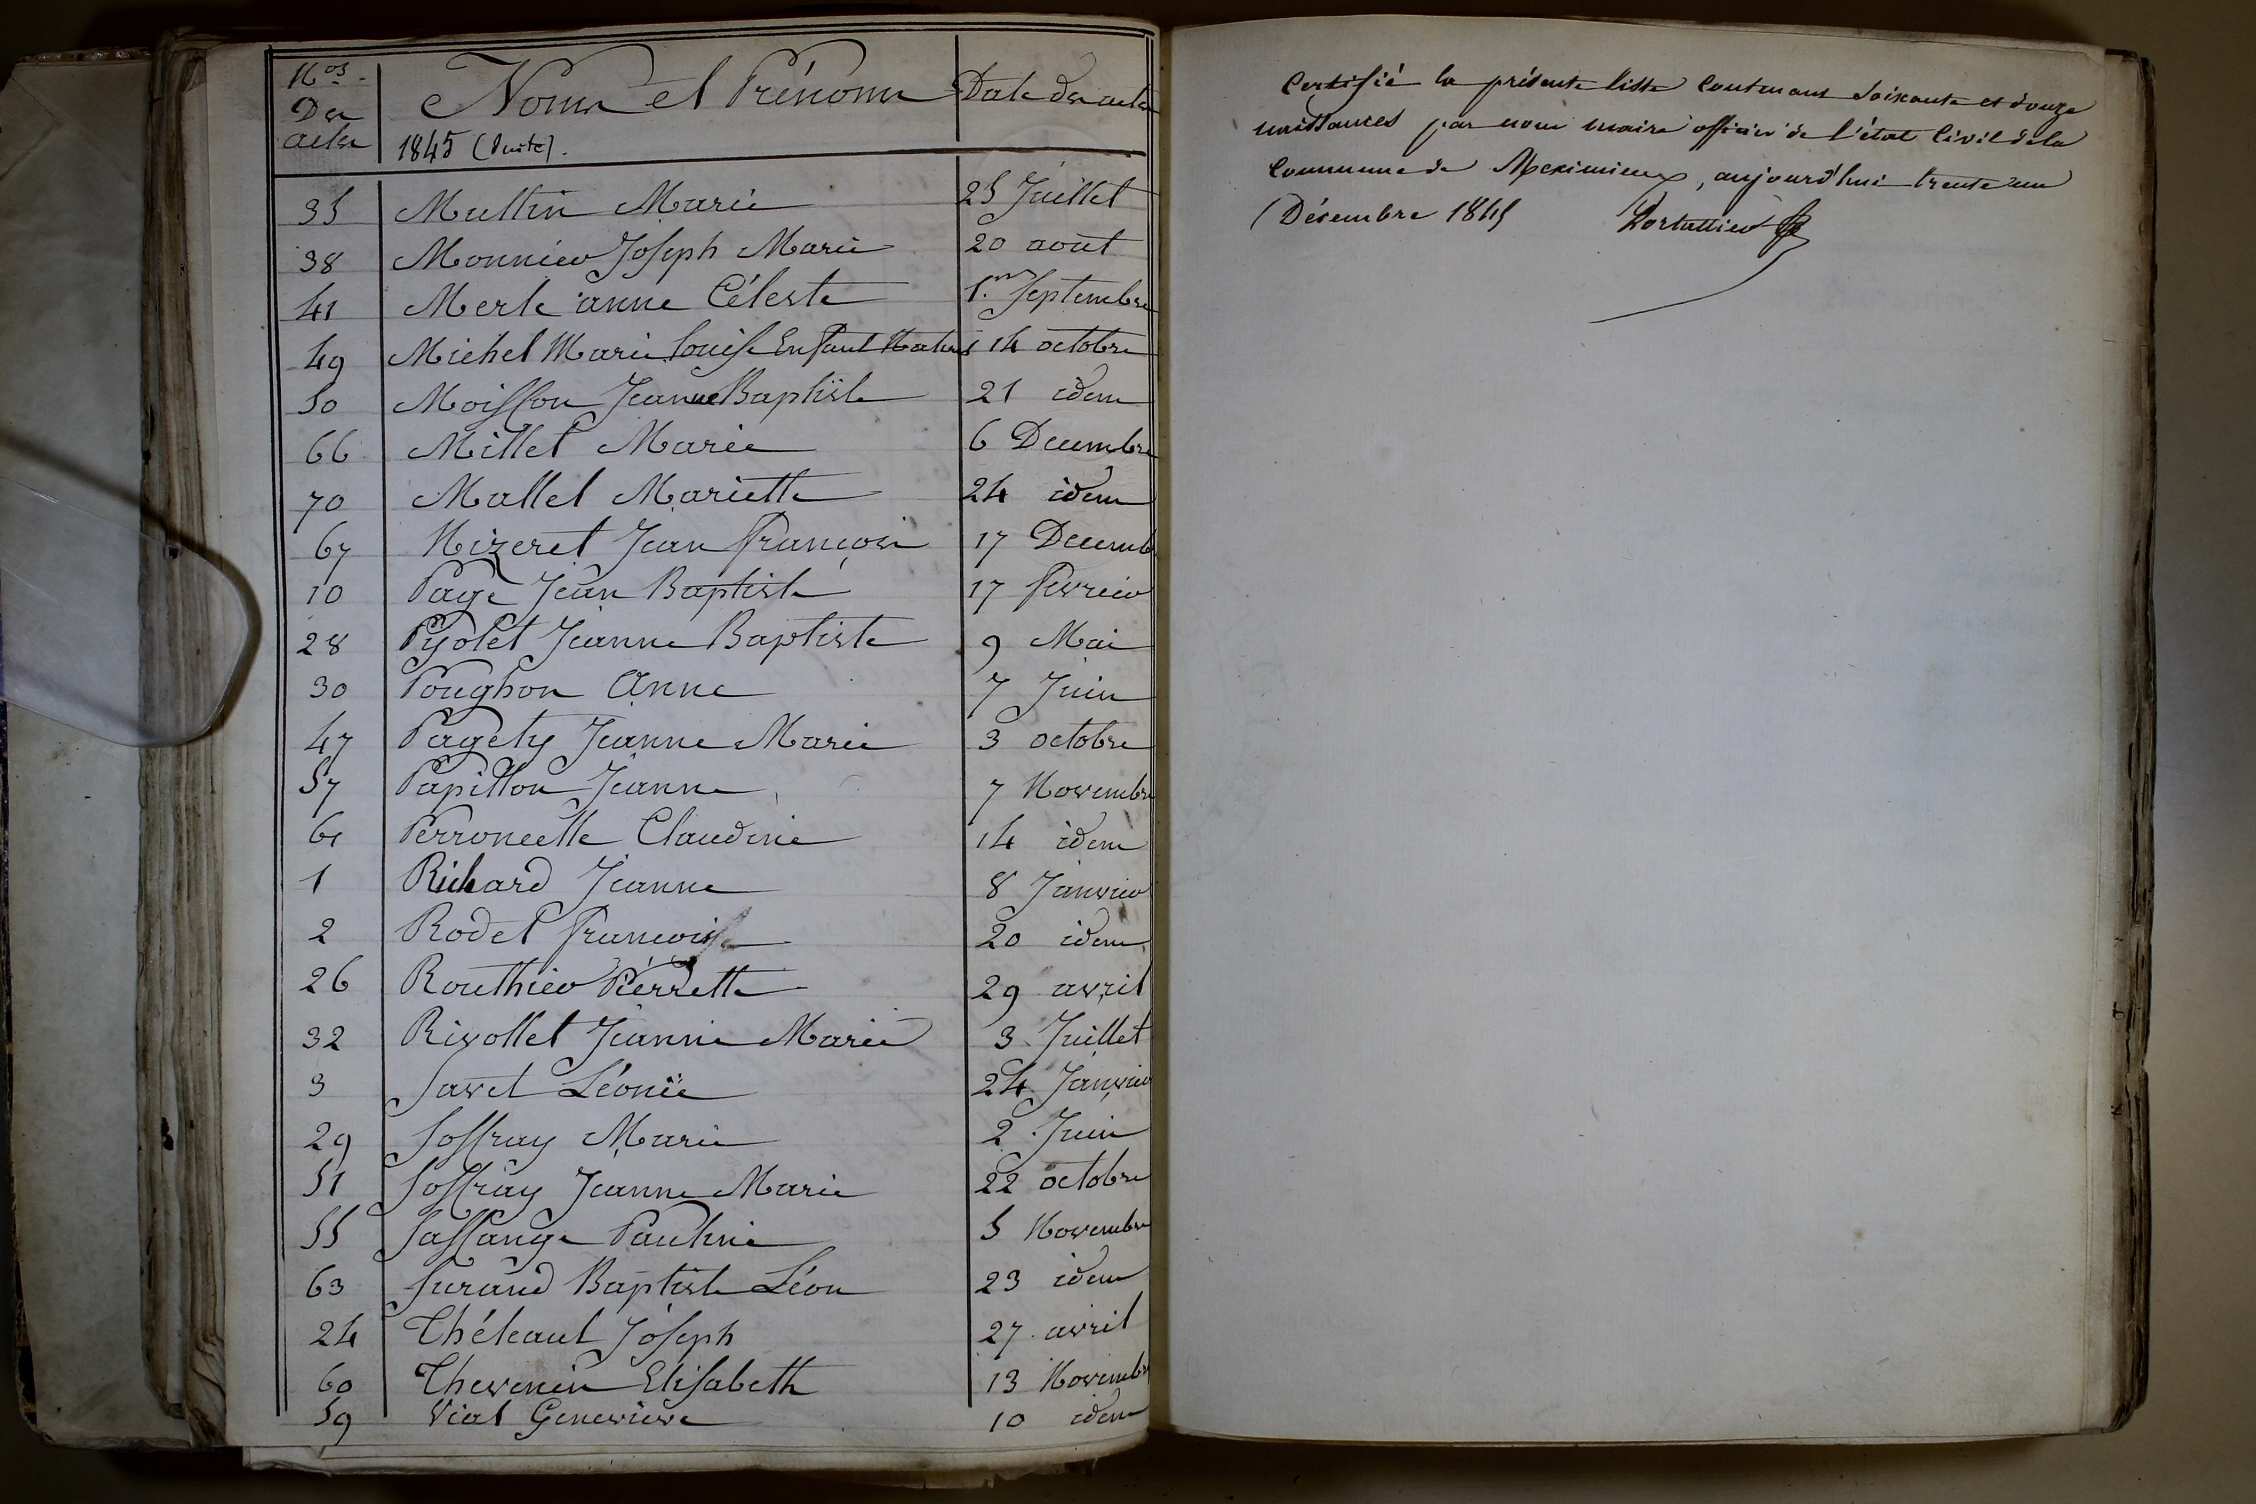 Nos Des actes | Noms et Prénoms | Date des actes
1845 (Suite).
35 Muttin Marie 25 Juillet
38 Monnier Joseph Marie 20 aout
41 Merle anne Céleste 1.er Septembre
49 Michel Marie Louise Enfant Naturel 14 octobre
50 Moisson Jeanne Baptiste 21 idem
66 Millet Marie 6 Decembre
70 Mallet Mariette 24 idem
67 Nizeret Jean françois 17 Decemb
10 Page Jean Baptiste 17 fevrier
28 Pijolet Jeanne Baptiste 9 Mai
30 Poughon Anne 7 Juin
47 Pagety Jeanne Marie 3 octobre
57 Papillon Jeanne 7 Novembre
61 Perroncelle Claudine 14 idem
1 Richard Jeanne 8 Janvier
2 Rodet françoise 20 idem
26 Routhier Pierrette 29 avril
32 Rivollet Jeanne Marie 3 Juillet
3 Savet Léonie 24 Janvier
29 Soffray Marie 2 Juin
51 Soffray Jeanne Marie 22 octobre
55 Sassange Pauline 5 Novembre
63 Surand Baptiste Léon 23 idem
24 Théleaut Joseph 27 avril
60 Thevenin Elisabeth 13 Novembre
59 Vial Genevieve 10 idem
Certifié la présente liste contenant soixante et douze
naissances par nous maire officier de l'état civil de la
Commune de Meximieux, aujourd'hui trente un
Décembre 1845 Portallier